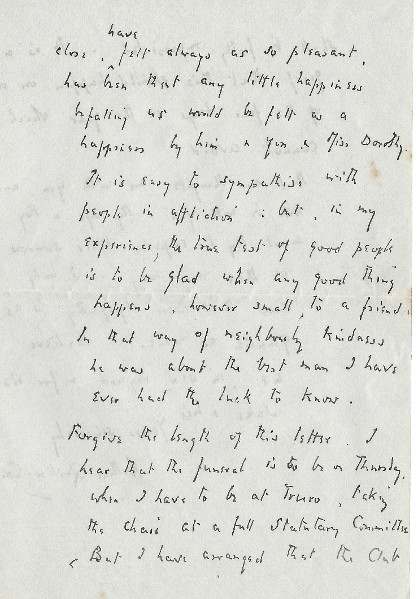 have
close, felt always as so pleasant,
has been that any little happiness
befalling us would be felt as a
happiness by him & you & Miss Dorothy.
It is easy to sympathise with
people in affliction : but, in my
experience, the true test of good people
is to be glad when any good thing
happens, however small, to a friend.
In that way of neighbourly kindness
he was about the best man I have
ever had the luck to know.
Forgive the length of this letter. I
hear that the funeral is to be on Thursday,
when I have to be at Truro, taking
the chair at a full Statutory Committee
But I have arranged that the Club